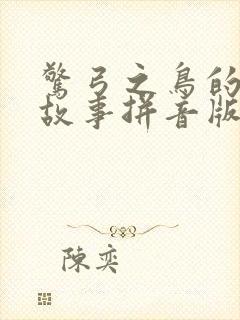 驚弓之鳥的
故事拼音版
陳奕